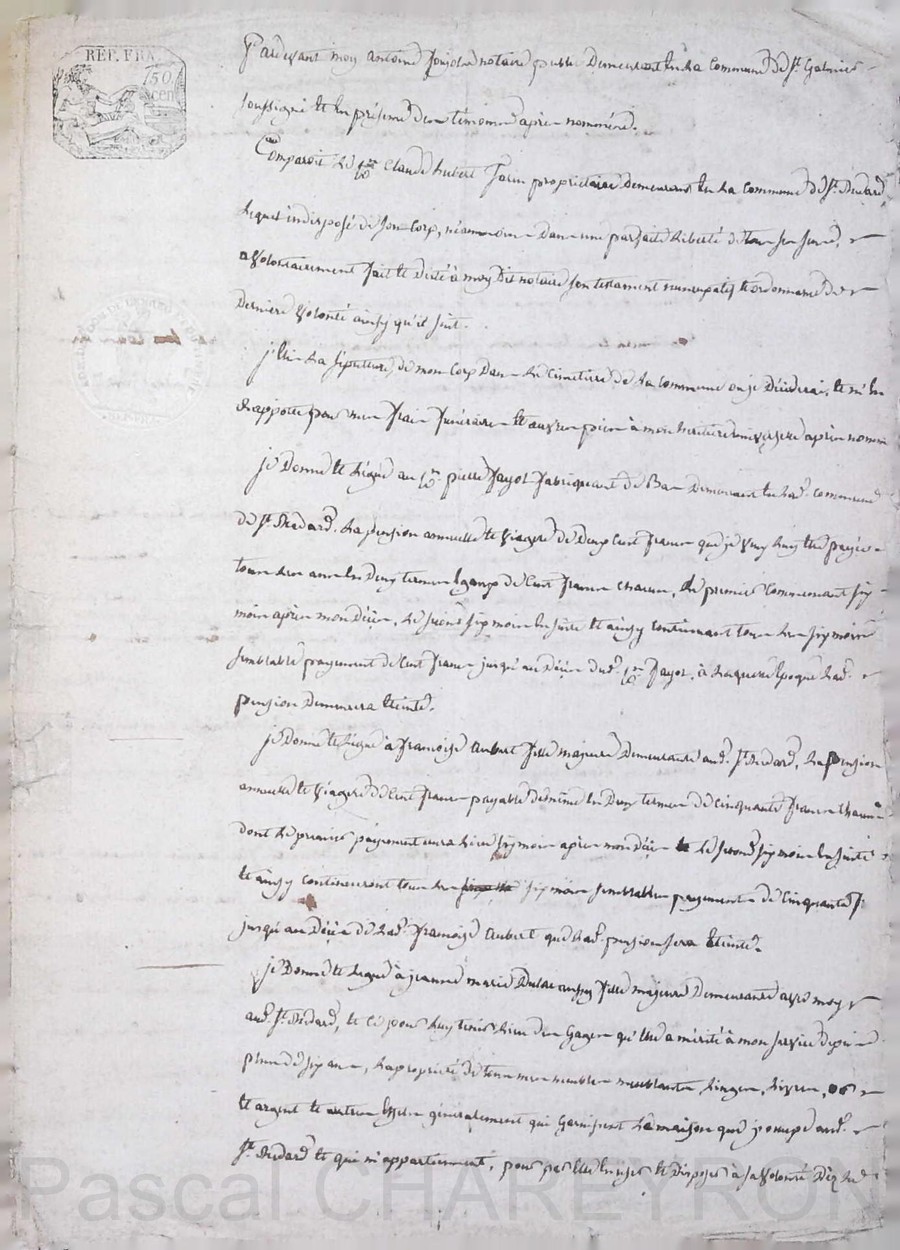 REP. FRA
50
cen
Pardevant moy antoine notaire public Demeurant en La Commune de St. Galmier
soussigné et en présence des témoins après nommés.
Comparoit Le sr. Claude hubert proprietaire demeurant en La Commune de St. Médard
Lequel indisposé de son Corp, néanmoins Dans une parfaite Liberté de tous ses sens,
a Volontairement fait et dicté à moy Dit notaire son testament nuncupatif et ordonnance de
Derniere Volonté ainsy qu'il suit.
j'élis La sépulture de mon Corp Dans Le Cimetiere de La Commune ou je Décéderai, et m'en
Rapporte pour mes frais funéraires et œuvres pies à mon héritiere universelle après nommée
je Donne et Legue au sr. pierre fayot fabriquant de Bas Demeurant en Lad. commune
de St. Médard. La pension annuelle et Viagere de Deux Cent francs que je Veux luy être payée
tous Les ans en Deux termes Egaux de Cent francs chacun, Le premier Commencant six
mois après mon Décès, Le second six mois Ensuite et ainsy continuant tous Les six mois
semblable payement de Cent francs jusqu'au Décès dud. sr. fayot, à Laquelle Epoque Lad.
pension Demeurera Eteinte.
je Donne et Legue à francoise aubert fille majeure Demeurante aud. St. Médard, La pension
annuelle et Viagere de Cent francs payable de même en Deux termes de Cinquante francs chacun
dont Le premier payement aura Lieu six mois après mon Décès Le second six mois Ensuite
et ainsy continueront tous Les six mois semblables payements de Cinquante f
jusqu'au Décès de Lad. francoise aubert que Lad. pension sera Eteinte.
je Donne et Legue à jeanne marie fille majeure Demeurante avec moy
aud. St. Médard, et ce pour Luy tenir Lieu des Gages qu'Elle a mérité à mon service depuis
plus de six ans, La proprieté de tous mes meubles meublants, Linges, Livres, or
et argent et autres Effets généralement qui Garnissent La maison que j'occupe aud.
St. Médard et qui m'appartiennent, pour par Elle En user et Disposer à sa Volonté Dès
Pascal CHAREYRON